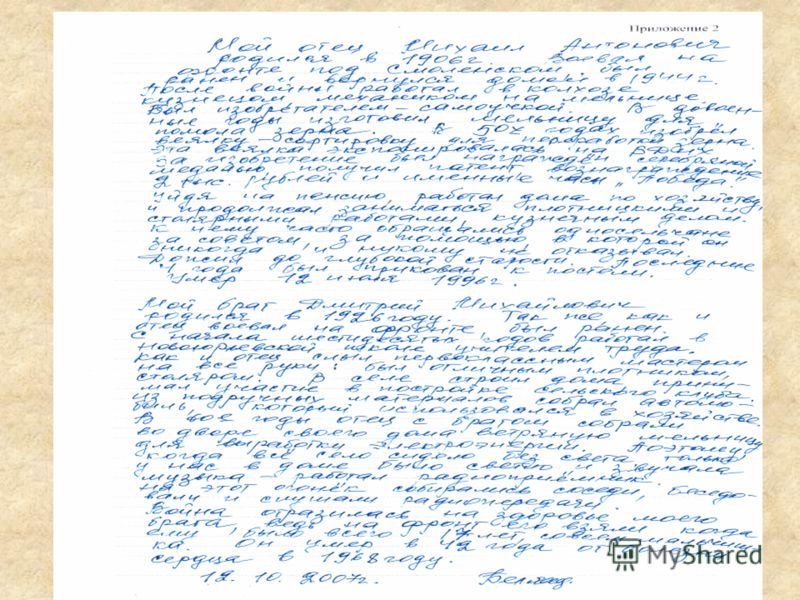 Приложение 2
Мой отец Михаил Антонович
родился в 1906г. Воевал на
фронте под Смоленском был
ранен и вернулся домой в 1944г.
После войны работал в колхозе
кузнецом механиком на мельнице.
Был изобретателем-самоучкой. В довоен-
ные годы изготовил мельницу для
помола зерна. В 50х годах изобрёл
веялку - сортировку для переработки зерна.
Эта веялка экспонировалась на ВДНХ
За изобретение был награждён серебряной
медалью, получил патент, вознаграждение
2 тыс. рублей и именные часы „Победа".
Уйдя на пенсию, работал дома по хозяйству,
и продолжал заниматься плотницкими и
столярными работами, кузнечным делом.
К нему часто обращались односельчане
за советом, за помощью в которой он
никогда и никому не отказывал.
Дожил до глубокой старости. Последние
4 года был прикован к постели.
Умер 12 июля 1996г.
Мой брат Дмитрий Михайлович
родился в 1926 году. Так же как и
отец воевал на фронте был ранен.
С начала шестидесятых годов работал в
школе учителем труда.
Как и отец слыл первоклассным мастером
на все руки: был отличным плотником,
столяром. В селе строил дома прини-
мал участие в постройке сельского клуба.
Из подручных материалов собрал автомо-
биль, который использовался в хозяйстве.
В 60е годы отец с братом собрали
во дворе своего дома ветряную мельницу
для выработки электроэнергии. Поэтому
когда всё село сидело без света только
у нас в доме было светло и звучала
музыка - работал радиоприёмник.
На этот огонёк собирались соседи, беседо-
вали и слушали радиопередачи.
Война отразилась на здоровье моего
брата, ведь на фронт его взяли когда
ему было всего 17 лет, совсем мальчиш-
ка. Он умер в 42 года от
сердца в 1968 году.
12. 10. 2007г.
MyShared